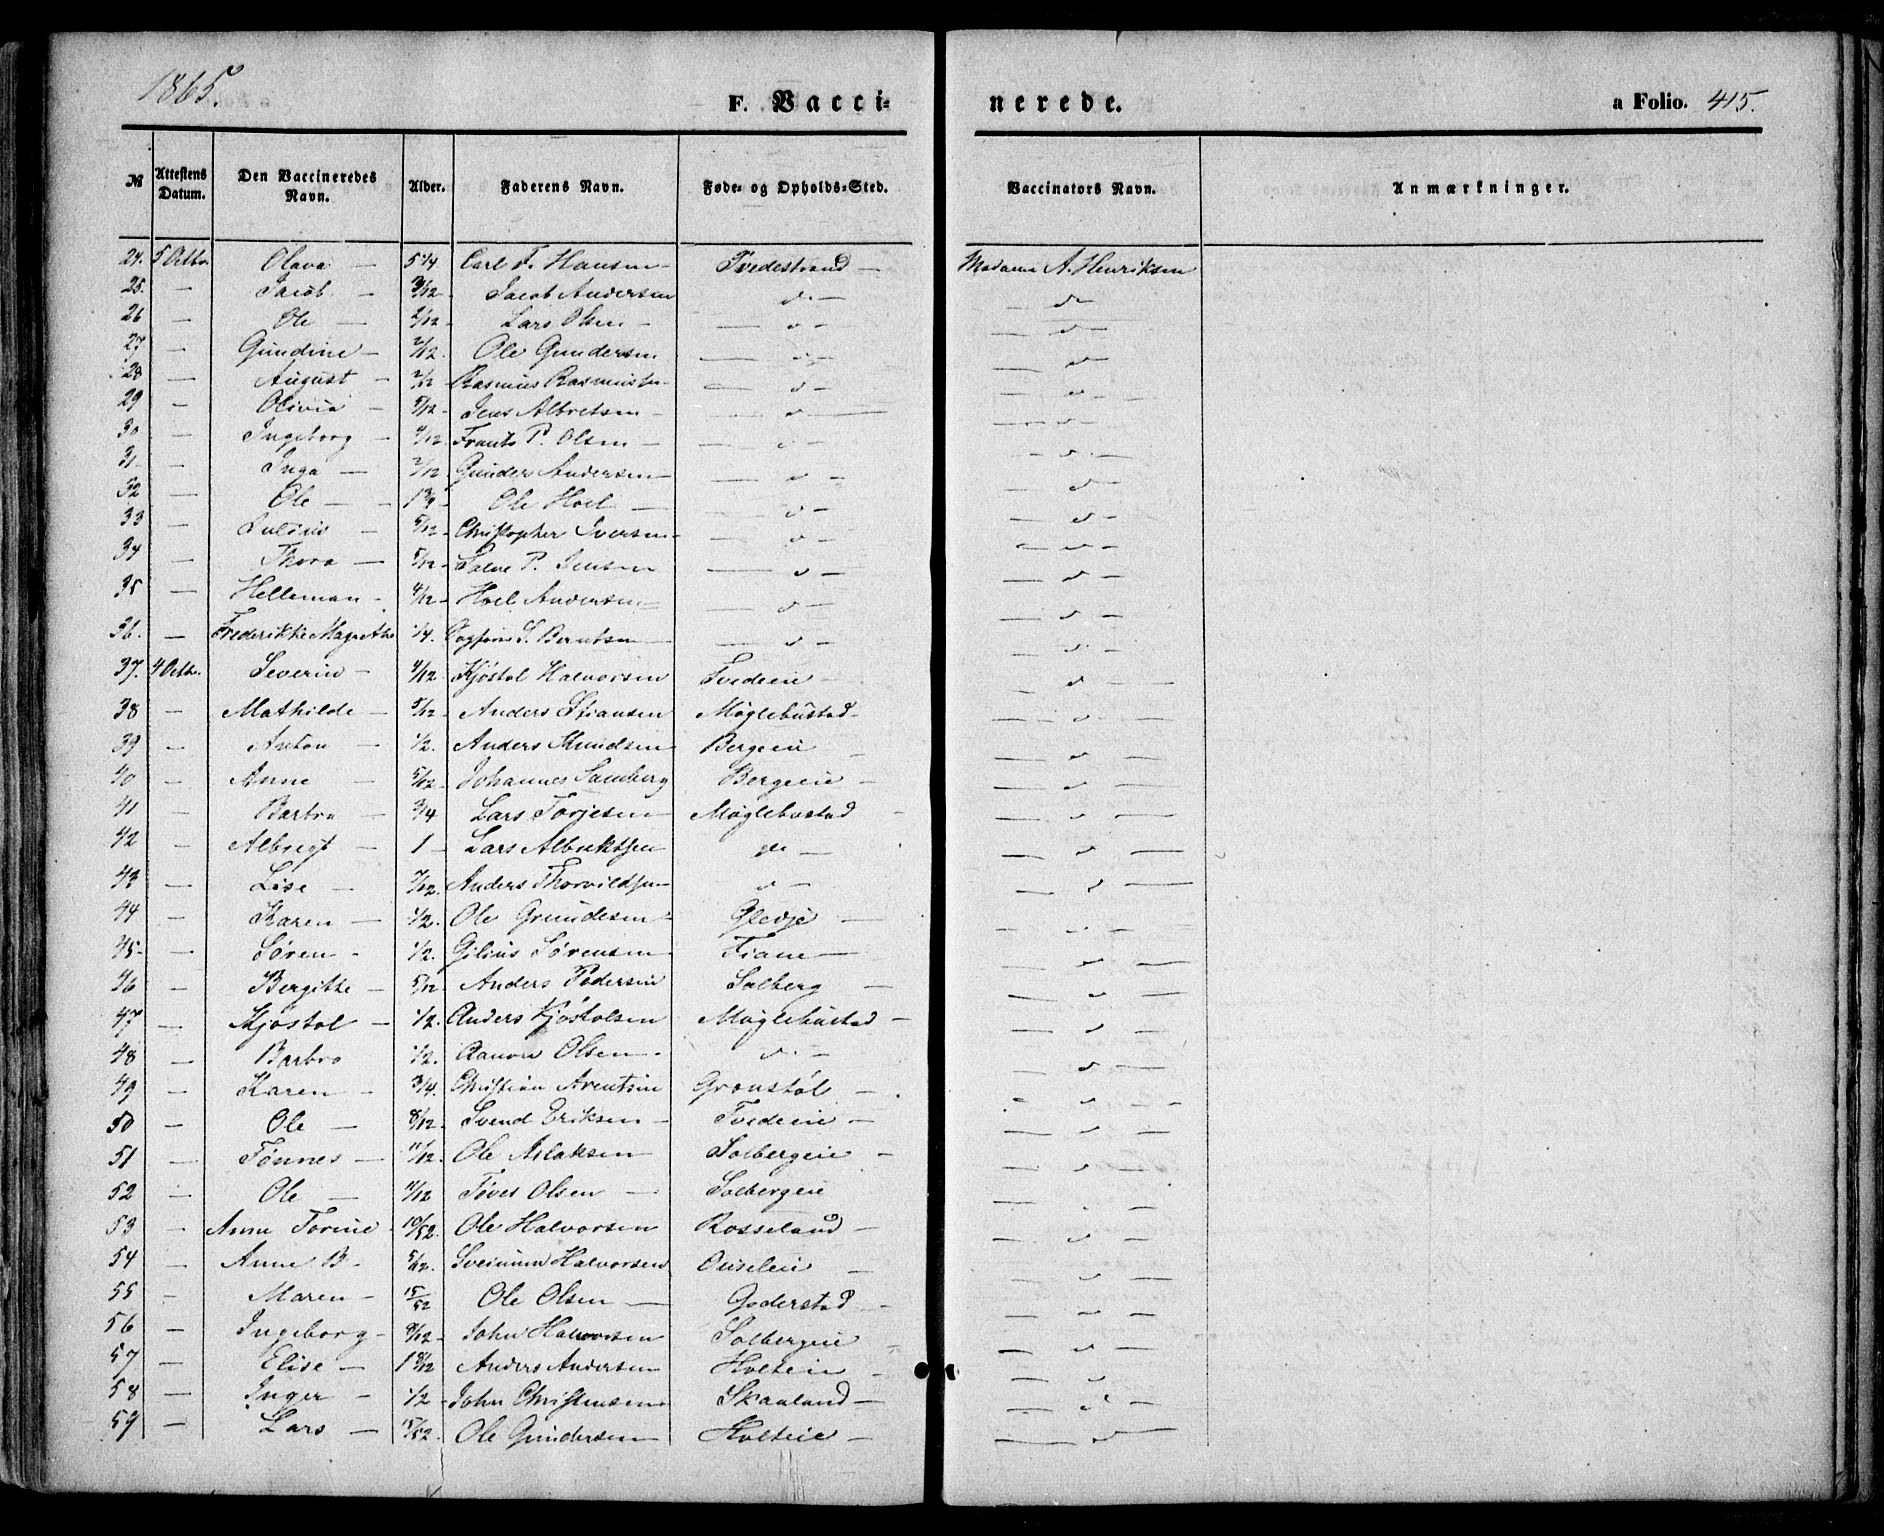 1865.
F. Vacci- nerede. a Folio. 415.
№ Attestens Datum. Den Vaccineredes Navn. Alder. Faderens Navn. Føde- og Opholds-Sted. Vaccinators Navn. Anmærkninger.
24. 5 Octbr. Olava 5 1/4 Carl F. Hansen Tvedestrand — Madame A. Henriksen
25. — Jacob — 3/12 Jacob Andersen — d — — d —
26 — Ole — 2/12 Lars Olsen — — d — — d —
27 — Gundine — 2/12. Ole Gundersen — d — — d —
28 — August — 2/12 Rasmus — d — — d —
29 — Olivia — 5/12 Jens Albretsen — — d — — d —
30 — Ingeborg — 4/12. Frants P. Olsen — — d — — d —
31. — Inga — 2/12 Gunder Andersen — — d — — d —
32 — Ole — Ole Hoel — — d — — d —
33 — Julius — 5/12 Christopher Iversen — — d — — d —
34 — Thora — 5/12 Salve P. Jensen — d — — d —
35 — Helleman — 4/12 Hoel Andersen — — d — — d —
36. — Frederikke Magrethe 1/4. S. Berntsen — — d — — d —
37. 4 Octbr. Severin — 4/12 Kjøstol Halvorsen Tvedeeie — — d —
38 — Mathilde — 5/12 Anders Stiansen Møglebustad — — d —
39 — Anton — 1/2. Anders Knudsen Bergeeie — — d —
40 — Anne — 5/12 Johannes Samberg Bergeeie — — d —
41 — Barbro — 3/4 Lars Torjesen — Møglebustad — — d —
42 — Albregt — 1 — Lars Albrektsen do — — d —
43 — Lise — 7/12. Anders Thorvildsen — d — — d —
44 — Karen — 1/2. Ole Grundesen — Glevje — — d —
45 — Søren — 1/2. Gilius Sørensen Fiane — — d —
46 — Bergitte — 5/12 Anders Pedersen Solberg — — d —
47 — Kjøstol — 1/2. Anders Kjøstolsen Møglebustad — — d —
48 — Barbro 1/2. Aanon Olsen — d — — d —
49 — Karen — 3/4. Christian Arentsen Grønstøl — — d —
50 — Ole — 8/12 Svend Eriksen — Tvedeeie — — d —
51 — Tønnes — 11/12. Ole Aslaksen — Solbergeie — — d —
52 — Ole — 11/12 Tøves Olsen — Solbergeie — d —
53 — Anne Torine — 10/52. Ole Halvorsen Rosseland — — d —
54 — Anne B. 5/12. Sveinum Halvorsen — — d —
55 — Maren — 15/52 Ole Olsen — Goderstad — — d —
56 — Ingeborg — 8/12 — John Halvorsen Solbergeie — — d —
57 — Elise — 1 8/12 Anders Andersen Holteie — — d —
58 — Inger — 1/2 — John Christensen Skaaland — — d —
59 — Lars — 15/52. Ole Gundersen — Holteie — — d —